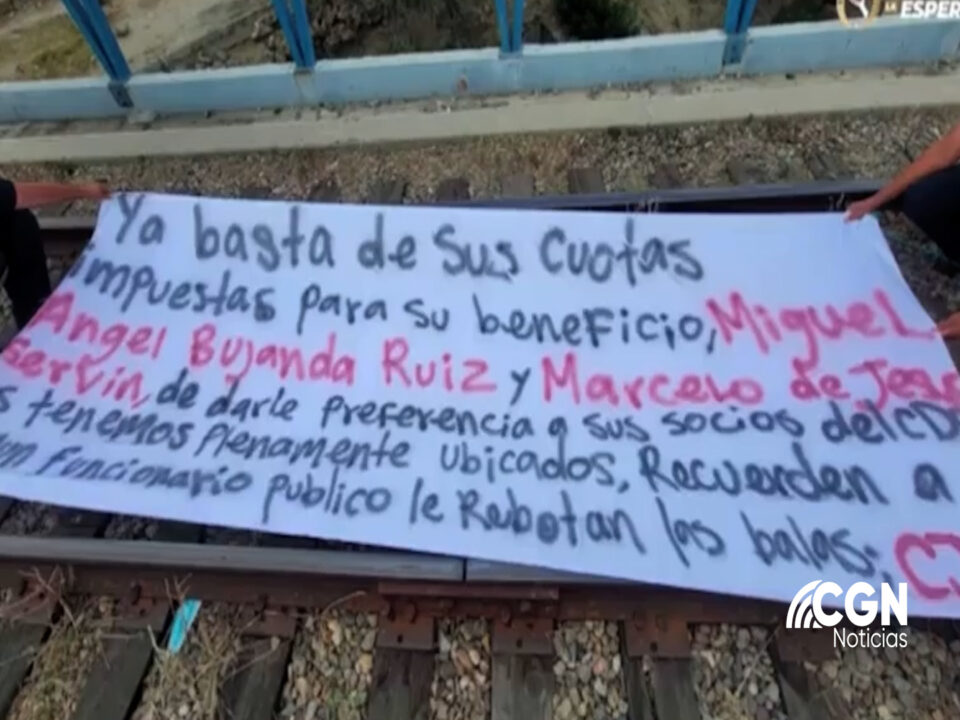 LA ESPER
Ya basta de sus cuotas
impuestas para su beneficio, Miguel
Angel Bujanda Ruiz y Marcelo de Jesu
Gervin, de darle preferencia a sus socios del CD
s tenemos Plenamente ubicados, Recuerden a
un Funcionario publico le Rebotan las balas.
CGN
Noticias